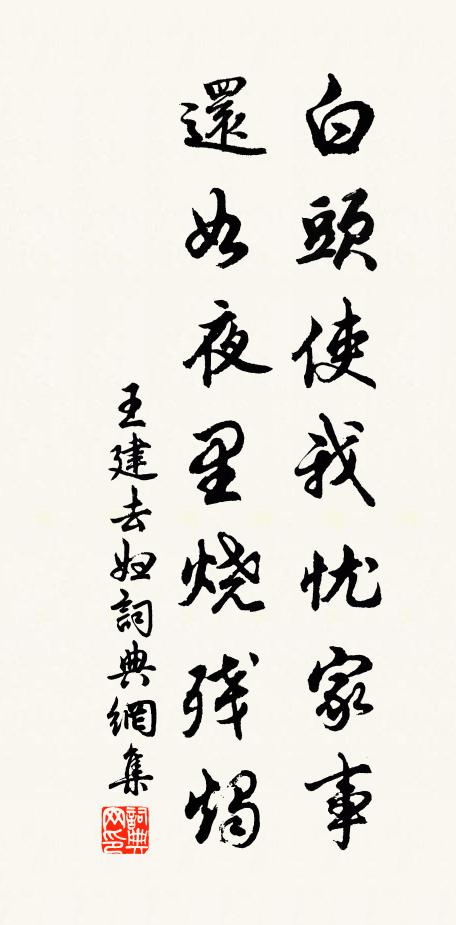 白頭使我忧家事
還如夜里烧残燭
王建去婦詞典網集
詞典网印